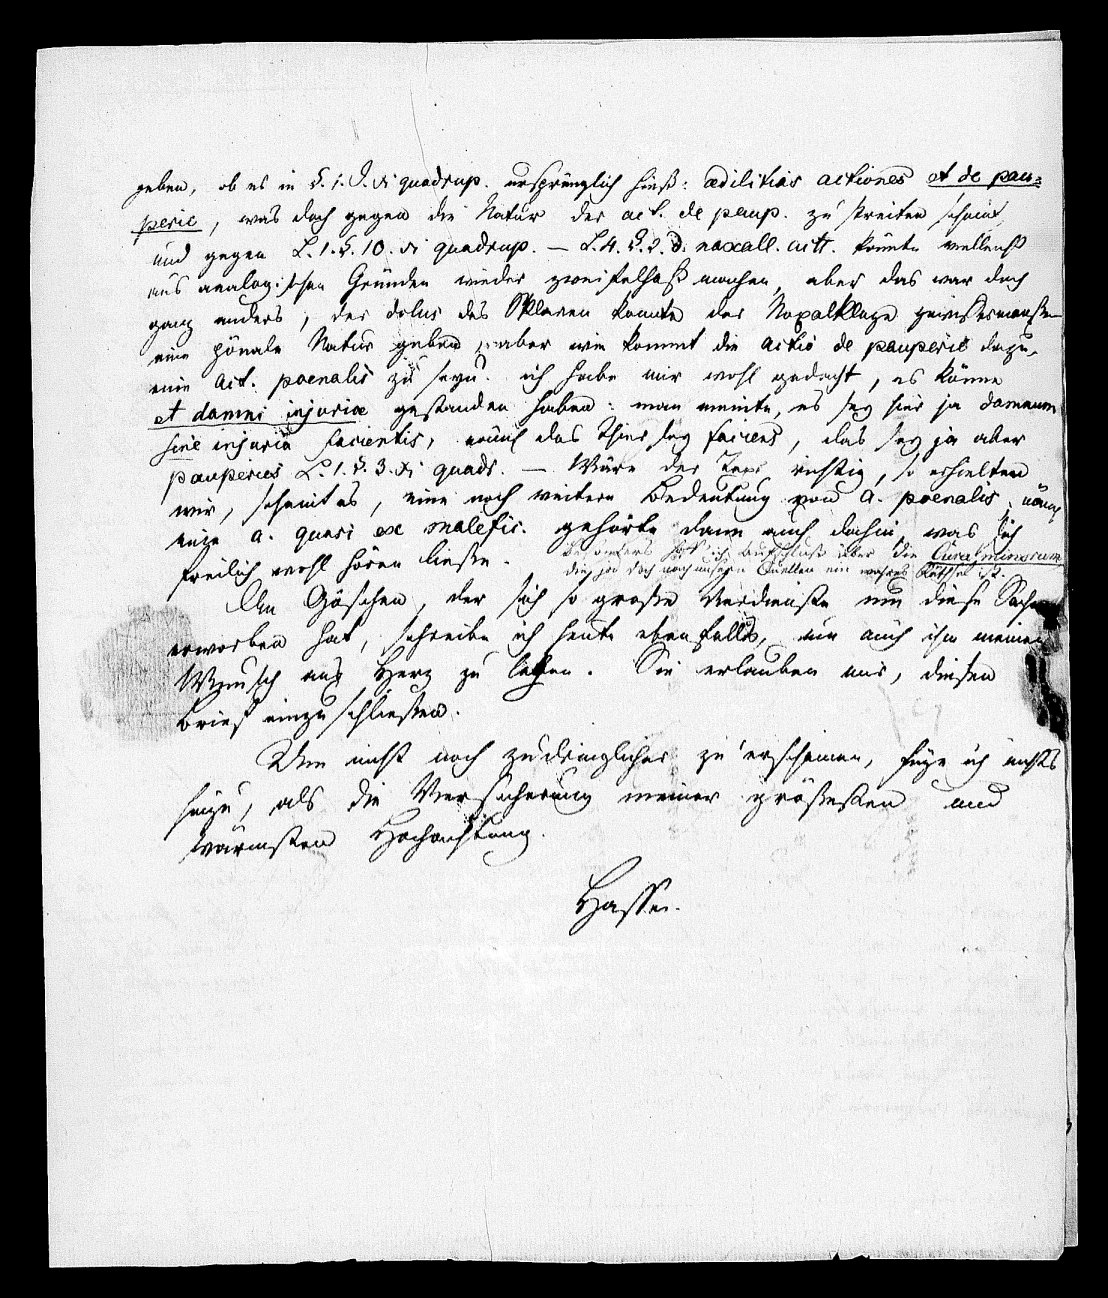 geben, ob es in §. 1. J. si quadrup. ursprünglich hieß: ædilitias actiones et de pau-
perie, was doch gegen die Natur der act. de paup. zu streiten scheint
und gegen L. 1. §. 10. si quadrup. — L. 4. §. 2. D. noxall. actt. könnte vielleicht
aus analogischen Gründen wieder zweifelhaft machen, aber das war doch
ganz anders, der dolus des Sklaven konnte der Noxalklage gewissermaßen
eine pönale Natur geben, aber wie kommt die actio de pauperie dazu,
eine act. poenalis zu seyn. ich habe mir wohl gedacht, es könne
et damni injuriæ gestanden haben: man meinte, es sey hier ja damnum
sine injuria facientis, auch das Thier sey faciens, das sey ja aber
pauperies L. 1. §. 3. si quadr. — Wäre der Text richtig, so erhielten
wir, scheint es, eine noch weitere Bedeutung von a. poenalis,
eine a. quasi ex malefic. gehörte dann auch dahin, was sich
freilich wohl hören ließe. Besonders hoff' ich Aufschluß über die Cura minorum
die ja doch nach unsern Quellen ein wahres Räthsel ist.
An Göschen, der sich so große Verdienste um diese Sache
erworben hat, schreibe ich heute ebenfalls, um auch ihm meinen
Wunsch ans Herz zu legen. Sie erlauben mir, diesen
Brief einzuschließen.
Um nicht noch zudringlicher zu erscheinen, füge ich nichts
hinzu, als die Versicherung meiner größesten und
wärmsten Hochachtung.
Hasse.